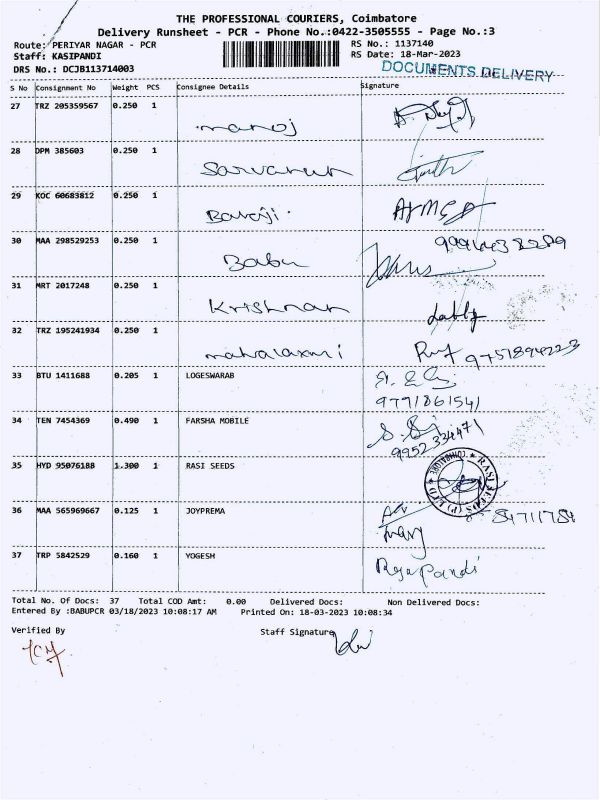 THE PROFESSIONAL COURIERS, Coimbatore
Delivery Runsheet - PCR - Phone No.:0422-3505555 - Page No.:3
Route: PERIYAR NAGAR - PCR
RS No.: 1137140
Staff: KASIPANDI
RS Date: 18-Mar-2023
DRS No.: DCJB113714003
DOCUMENTS DELIVERY
S No Consignment No Weight PCS Consignee Details Signature
27 TRZ 205359567 0.250 1
manoj
28 DPM 385603 0.250 1
Sarvanun
29 KOC 60683812 0.250 1
Baraji.
30 MAA 298529253 0.250 1
Babu
31 MRT 2017248 0.250 1
Krishnan
32 TRZ 195241934 0.250 1
mahalaxmi 9751894223
33 BTU 1411688 0.205 1 LOGESWARAB
9791861541
34 TEN 7454369 0.490 1 FARSHA MOBILE
9952334471
35 HYD 95076188 1.300 1 RASI SEEDS
RASI SEEDS (P) LTD COIMBATORE
36 MAA 565969667 0.125 1 JOYPREMA
37 TRP 5842529 0.160 1 YOGESH
RajaPandi
Total No. Of Docs: 37 Total COD Amt: 0.00 Delivered Docs: Non Delivered Docs:
Entered By :BABUPCR 03/18/2023 10:08:17 AM Printed On: 18-03-2023 10:08:34
Verified By Staff Signature